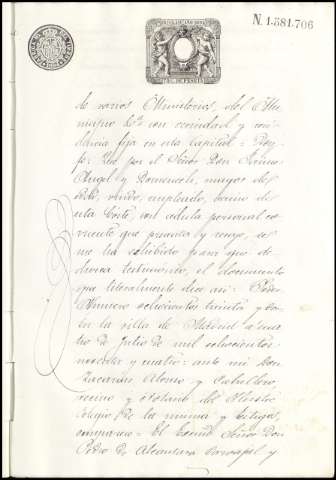 N. 1.581.706
de varios Ministerios, del Mu-
nicipio &ª con vecindad y resi-
dencia fija en esta Capital = Doy
fé: Que por el Señor Don
Angel y mayor de
edad, viudo, empleado, vecino de
esta Corte, con cédula personal co-
rriente que presenta y recoge, se
me ha exhibido para que de
él libre testimonio, el documento
que literalmente dice así: =
Número seiscientos treinta y
En la villa de Madrid a cua-
tro de Julio de mil ochocientos
noventa y cuatro: ante mi Don
Zacarias Alonso y Caballero,
vecino y Notario del Ilustre
Colegio de la misma y
comparece = El Excmo Señor Don
Pedro de Alcantara Carvajal y